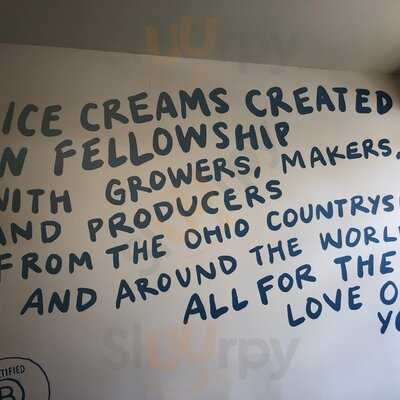 ICE CREAMS CREATED
N FELLOWSHIP
WITH GROWERS, MAKERS,
AND PRODUCERS
FROM THE OHIO COUNTRYS
AND AROUND THE WORL
ALL FOR THE
LOVE O
Y
TIFIED
B
Slurpy